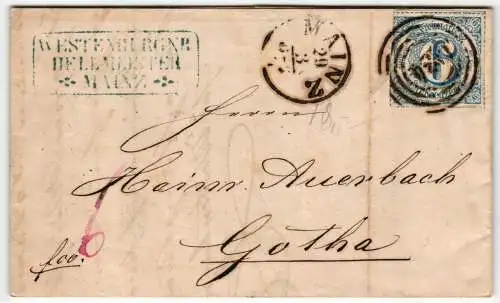 WESTENBURGER
HELLMEISTER
MAINZ
MAINZ
29
3
6
Herrn
Heinr. Auerbach
Gotha
6
fco.